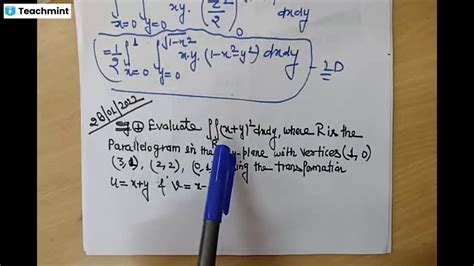 Teachmint
x=0 y=0 xy. dxdy
= 1/2 ∫_{x=0}^{1} ∫_{y=0}^{√1-x²} x.y. (1-x²-y²) dxdy - 2D
28/01/2022
Evaluate ∬(x+y)² dxdy, where R is the
Parallelogram in the -plane with vertices (1, 0)
(3, 1), (2, 2), (0, the transformation
u = x+y & v = x-